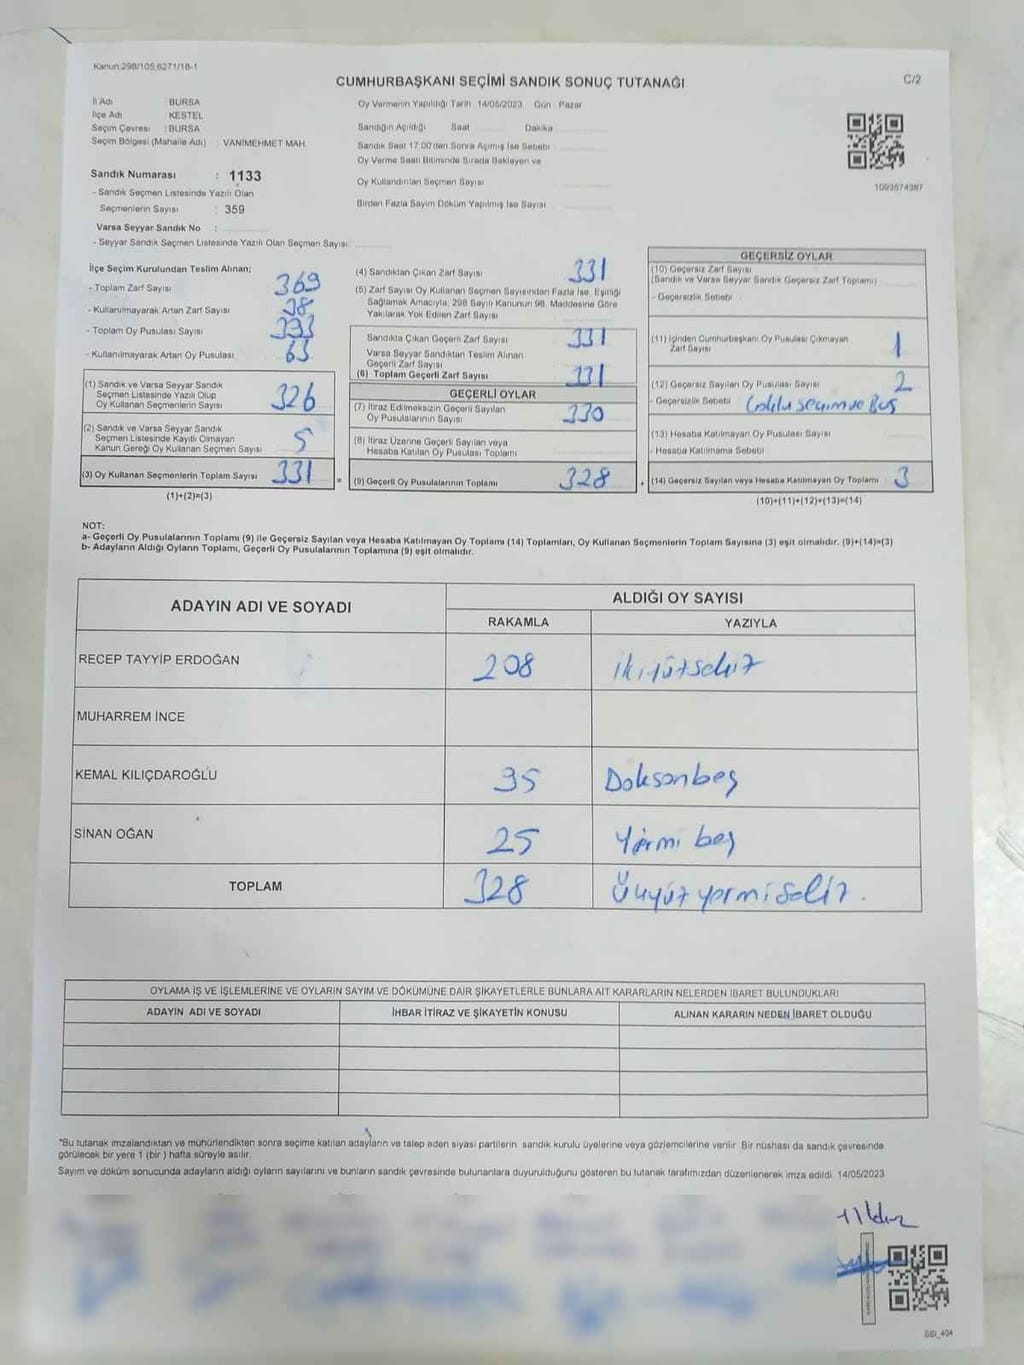 Kanun:298/105,6271/18-1
CUMHURBAŞKANI SEÇİMİ SANDIK SONUÇ TUTANAĞI
C/2
İl Adı : BURSA
İlçe Adı : KESTEL
Seçim Çevresi : BURSA
Seçim Bölgesi (Mahalle Adı) : VANİMEHMET MAH.
Sandık Numarası : 1133
- Sandık Seçmen Listesinde Yazılı Olan
Seçmenlerin Sayısı : 359
Varsa Seyyar Sandık No :
- Seyyar Sandık Seçmen Listesinde Yazılı Olan Seçmen Sayısı:
Oy Vermenin Yapıldığı Tarih: 14/05/2023 Gün : Pazar
Sandığın Açıldığı Saat Dakika
Sandık Saat 17:00'den Sonra Açılmış İse Sebebi
Oy Verme Saati Bitiminde Sırada Bekleyen ve
Oy Kullandırılan Seçmen Sayısı
Birden Fazla Sayım Döküm Yapılmış İse Sayısı
1093574387
İlçe Seçim Kurulundan Teslim Alınan;
- Toplam Zarf Sayısı 369
- Kullanılmayarak Artan Zarf Sayısı 38
- Toplam Oy Pusulası Sayısı 393
- Kullanılmayarak Artan Oy Pusulası 63
(1) Sandık ve Varsa Seyyar Sandık
Seçmen Listesinde Yazılı Olup
Oy Kullanan Seçmenlerin Sayısı 326
(2) Sandık ve Varsa Seyyar Sandık
Seçmen Listesinde Kayıtlı Olmayan
Kanun Gereği Oy Kullanan Seçmen Sayısı 5
(3) Oy Kullanan Seçmenlerin Toplam Sayısı 331 =
(1)+(2)=(3)
(4) Sandıktan Çıkan Zarf Sayısı 331
(5) Zarf Sayısı Oy Kullanan Seçmen Sayısından Fazla İse, Eşitliği
Sağlamak Amacıyla, 298 Sayılı Kanunun 98. Maddesine Göre
Yakılarak Yok Edilen Zarf Sayısı
Sandıkta Çıkan Geçerli Zarf Sayısı 331
Varsa Seyyar Sandıktan Teslim Alınan
Geçerli Zarf Sayısı
(6) Toplam Geçerli Zarf Sayısı 331
GEÇERLİ OYLAR
(7) İtiraz Edilmeksizin Geçerli Sayılan
Oy Pusulalarının Sayısı 330
(8) İtiraz Üzerine Geçerli Sayılan veya
Hesaba Katılan Oy Pusulası Toplamı
(9) Geçerli Oy Pusulalarının Toplamı 328 +
GEÇERSİZ OYLAR
(10) Geçersiz Zarf Sayısı
(Sandık ve Varsa Seyyar Sandık Geçersiz Zarf Toplamı)
- Geçersizlik Sebebi
(11) İçinden Cumhurbaşkanı Oy Pusulası Çıkmayan
Zarf Sayısı 1
(12) Geçersiz Sayılan Oy Pusulası Sayısı 2
- Geçersizlik Sebebi Çoklu seçim ve Boş
(13) Hesaba Katılmayan Oy Pusulası Sayısı
- Hesaba Katılmama Sebebi
(14) Geçersiz Sayılan veya Hesaba Katılmayan Oy Toplamı 3
(10)+(11)+(12)+(13)=(14)
NOT:
a- Geçerli Oy Pusulalarının Toplamı (9) ile Geçersiz Sayılan veya Hesaba Katılmayan Oy Toplamı (14) Toplamları, Oy Kullanan Seçmenlerin Toplam Sayısına (3) eşit olmalıdır. (9)+(14)=(3)
b- Adayların Aldığı Oyların Toplamı, Geçerli Oy Pusulalarının Toplamına (9) eşit olmalıdır.
ADAYIN ADI VE SOYADI ALDIĞI OY SAYISI
RAKAMLA YAZIYLA
RECEP TAYYİP ERDOĞAN 208 ikiyüzsekiz
MUHARREM İNCE
KEMAL KILIÇDAROĞLU 95 Doksanbeş
SİNAN OĞAN 25 Yirmi beş
TOPLAM 328 Üçyüz yirmi sekiz.
OYLAMA İŞ VE İŞLEMLERİNE VE OYLARIN SAYIM VE DÖKÜMÜNE DAİR ŞİKAYETLERLE BUNLARA AİT KARARLARIN NELERDEN İBARET BULUNDUKLARI
ADAYIN ADI VE SOYADI İHBAR İTİRAZ VE ŞİKAYETİN KONUSU ALINAN KARARIN NEDEN İBARET OLDUĞU
*Bu tutanak imzalandıktan ve mühürlendikten sonra seçime katılan adayların ve talep eden siyasi partilerin sandık kurulu üyelerine veya gözlemcilerine verilir. Bir nüshası da sandık çevresinde
görülecek bir yere 1 (bir) hafta süreyle asılır.
Sayım ve döküm sonucunda adayların aldığı oyların sayılarını ve bunların sandık çevresinde bulunanlara duyurulduğunu gösteren bu tutanak tarafımızdan düzenlenerek imza edildi. 14/05/2023
SSI_404